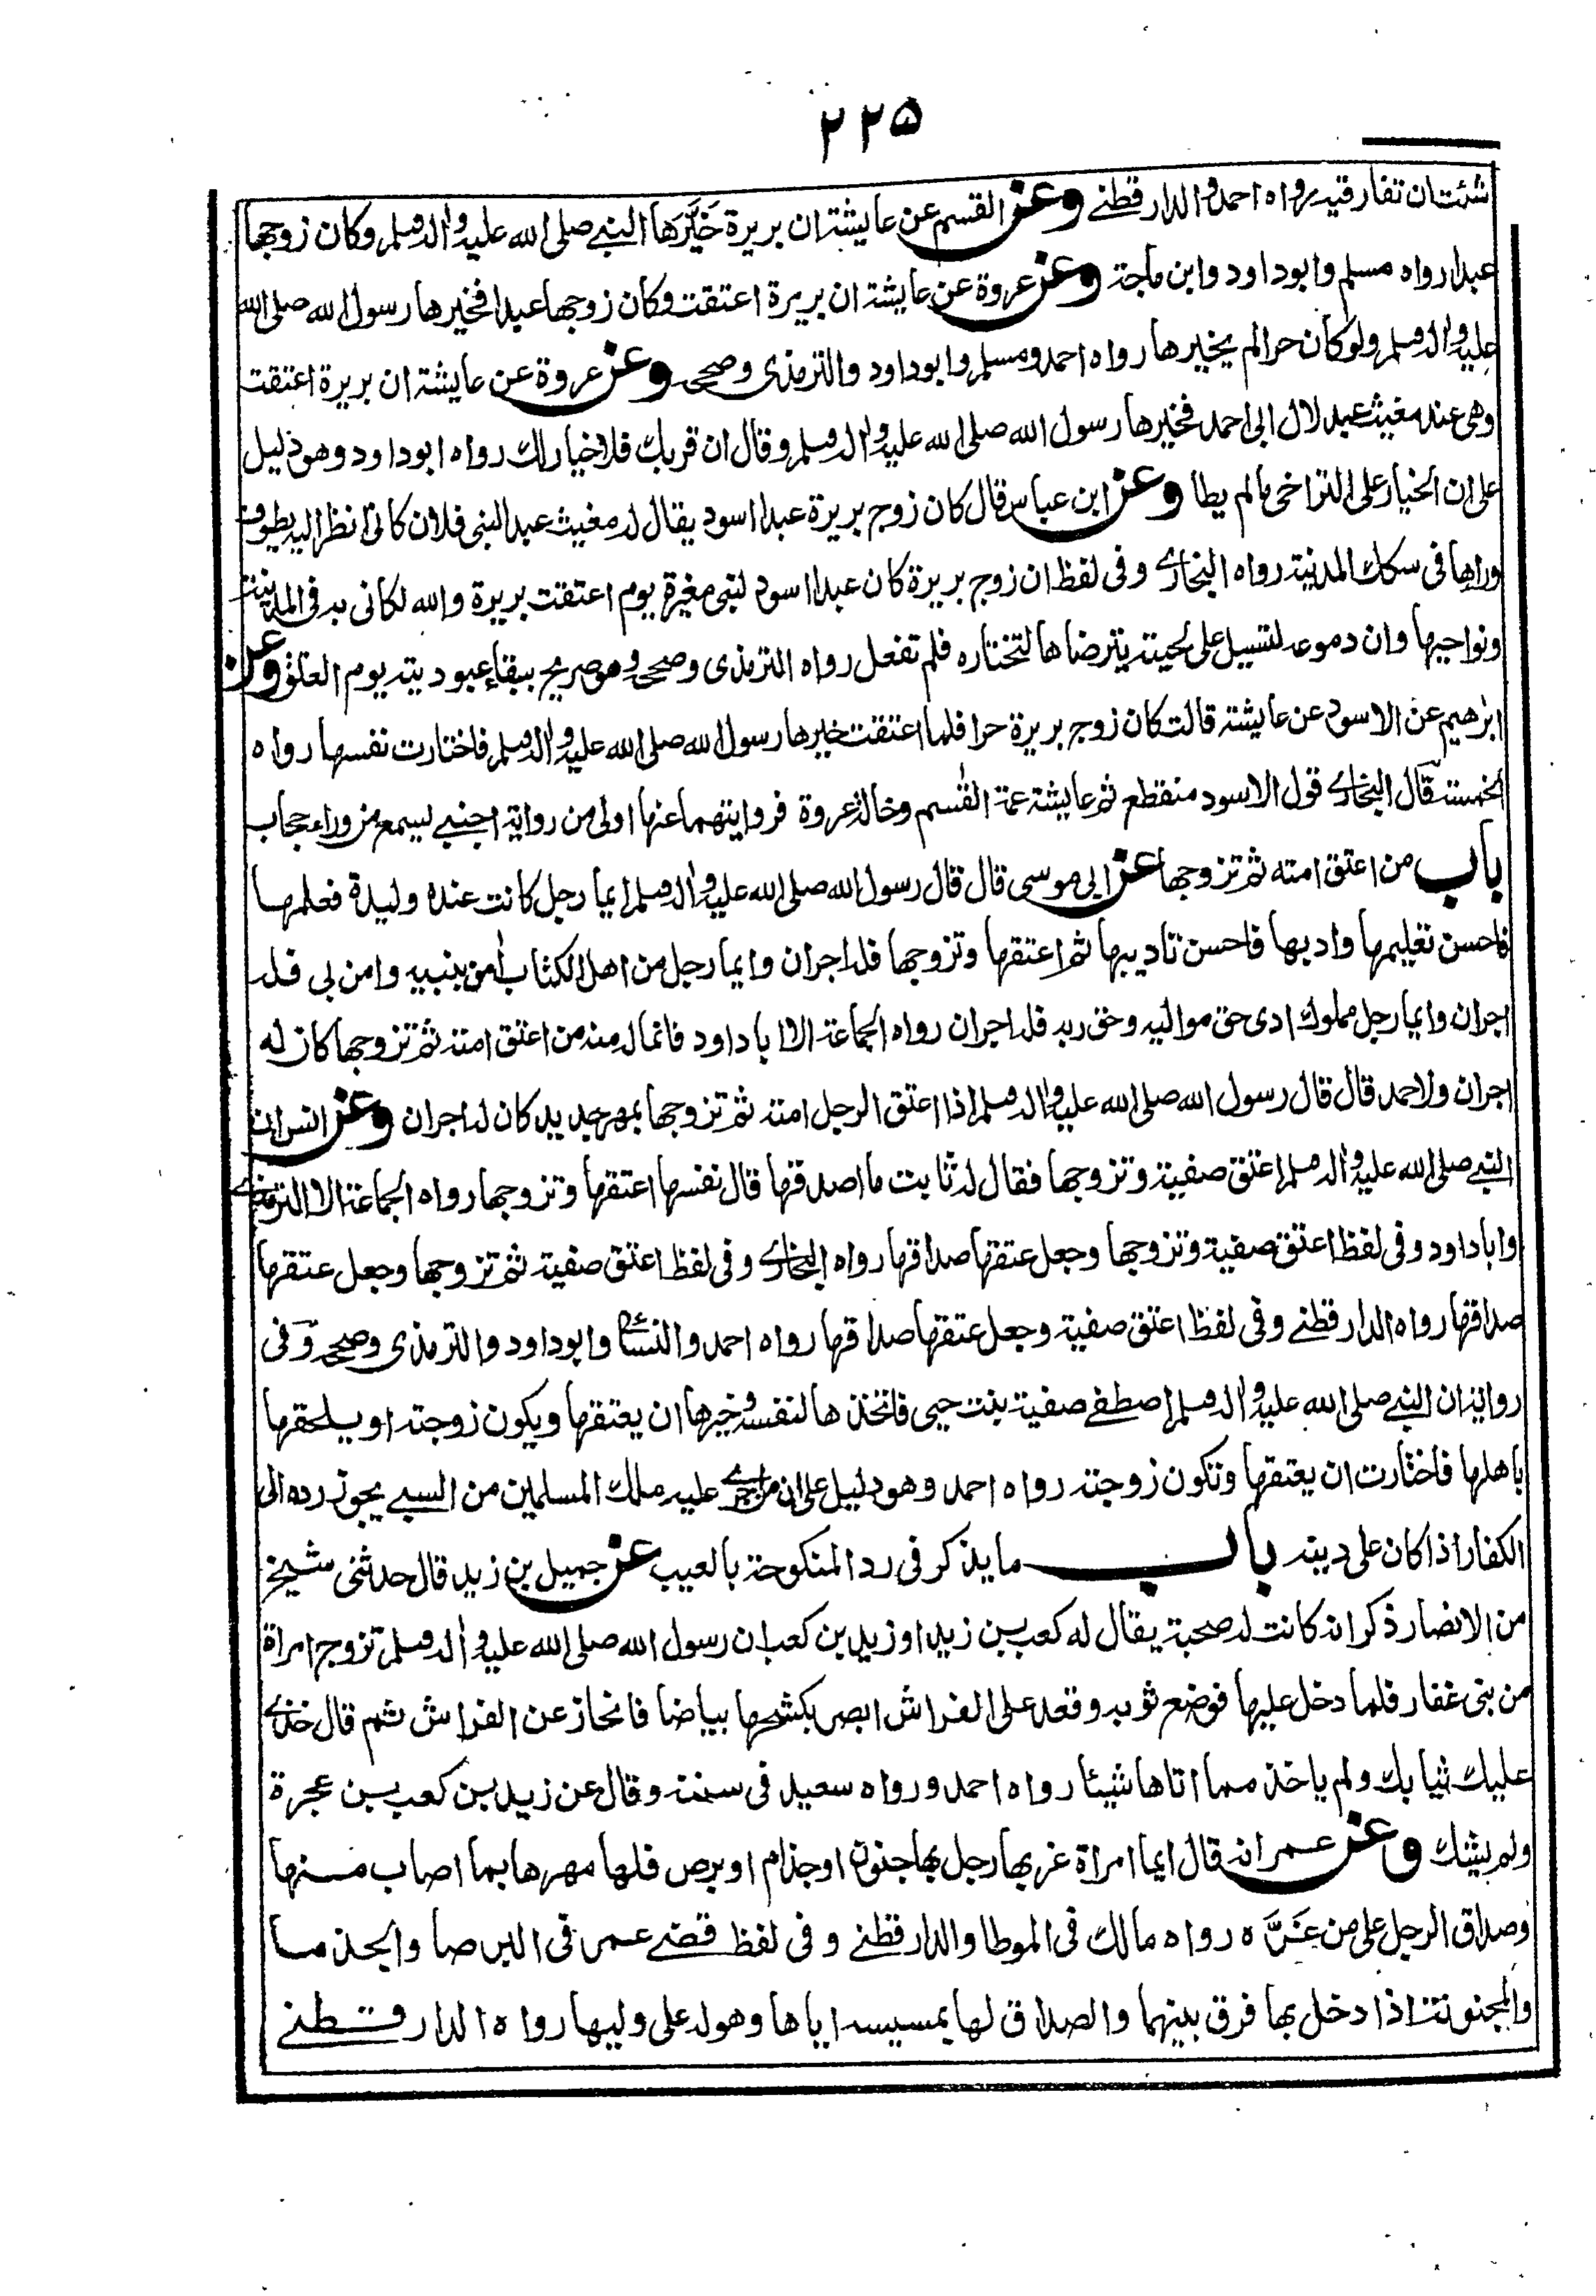 ٢٢٥
شئت ان تفارقيه رواه احمد والدارقطنے وعن القسم عن عايشة ان بريرة خَيَّرَها النبے صلى الله عليه واله وسلم وكان زوجها
عبدا رواه مسلم وابوداود وابن ماجة وعن عروة عن عايشة ان بريرة اعتقت وكان زوجها عبدا فخيرها رسول الله صلى الله
عليه واله وسلم ولو كان حرا لم يخيرها رواه احمد ومسلم وابوداود والترمذى وصححه وعن عروة عن عايشة ان بريرة اعتقت
وهى عند مغيث عبد لال ابى احمد فخيرها رسول الله صلى الله عليه واله وسلم وقال ان قربك فلا خيار لك رواه ابوداود وهو دليل
على ان الخيار على التراخى مالم يطا وعن ابن عباس قال كان زوج بريرة عبدا اسود يقال له مغيث عبد البنى فلان كانى انظر اليه يطوف
وراها فى سكك المدينة رواه البخارے وفى لفظ ان زوج بريرة كان عبدا اسود لبنى مغيرة يوم اعتقت بريرة والله لكانى به فى المدينة
ونواحيها وان دموعه لتسيل على لحيته يترضاها لتختاره فلم تفعل رواه الترمذى وصححه وهو صريح ببقاء عبوديته يوم العتق وعن
ابرٰهيم عن الاسود عن عايشة قالت كان زوج بريرة حرا فلما اعتقت خيرها رسول الله صلى الله عليه واله وسلم فاختارت نفسها رواه
الخمسة قال البخارے قول الاسود منقطع ثم عايشة عمة القٰسم وخالة عروة فروايتهما عنها اولى من رواية اجنبے يسمع من وراء حجاب
باب من اعتق امته ثم تزوجها عن ابى موسى قال قال رسول الله صلى الله عليه واله وسلم ايما رجل كانت عنده وليدة فعلمها
فاحسن تعليمها وادبها فاحسن تاديبها ثم اعتقها وتزوجها فله اجران وايما رجل من اهل الكتاب اٰمن بنبيه وامن بى فله
اجران وايما رجل مملوك ادى حق مواليه وحق ربه فله اجران رواه الجماعة الا ابا داود فانما له منه من اعتق امته ثم تزوجها كان له
اجران ولاحمد قال قال رسول الله صلى الله عليه واله وسلم اذا اعتق الرجل امته ثم تزوجها بمهر جديد كان له اجران وعن انس ان
النبے صلى الله عليه واله وسلم اعتق صفية وتزوجها فقال له ثابت ما اصدقها قال نفسها اعتقها وتزوجها رواه الجماعة الا الترمذے
وابا داود وفى لفظ اعتق صفية وتزوجها وجعل عتقها صداقها رواه البخارے وفى لفظ اعتق صفية ثم تزوجها وجعل عتقها
صداقها رواه الدارقطنے وفى لفظ اعتق صفية وجعل عتقها صداقها رواه احمد والنسائ وابوداود والترمذى وصححه وفى
رواية ان النبے صلى الله عليه واله وسلم اصطفے صفية بنت حيى فاتخذها لنفسه وخيرها ان يعتقها ويكون زوجته او يلحقها
باهلها فاختارت ان يعتقها وتكون زوجته رواه احمد وهو دليل على ان من جرے عليه ملك المسلمين من السبے يجوز رده الى
الكفار اذا كان على دينه باب ما يذكر فى رد المنكوحة بالعيب عن جميل بن زيد قال حدثنى شيخ
من الانصار ذكر انه كانت له صحبة يقال له كعب بن زيد او زيد بن كعب ان رسول الله صلى الله عليه واله وسلم تزوج امراة
من بنى غفار فلما دخل عليها فوضع ثوبه وقعد على الفراش ابصر بكشحها بياضا فانحاز عن الفراش ثم قال خذے
عليك ثيابك ولم ياخذ مما اتاها شيئا رواه احمد ورواه سعيد فى سننه وقال عن زيد بن كعب بن عجرة
ولم يشك وعن عمر انه قال ايما امراة غر بها رجل بها جنون او جذام او برص فلها مهرها بما اصاب منها
وصداق الرجل على من غَرَّه رواه مالك فى الموطا والدارقطنے وفى لفظ قضے عمر فى البرصا والجذما
والمجنونة اذا دخل بها فرق بينهما والصداق لها بمسيسه اياها وهو له على وليها رواه الدارقطنے